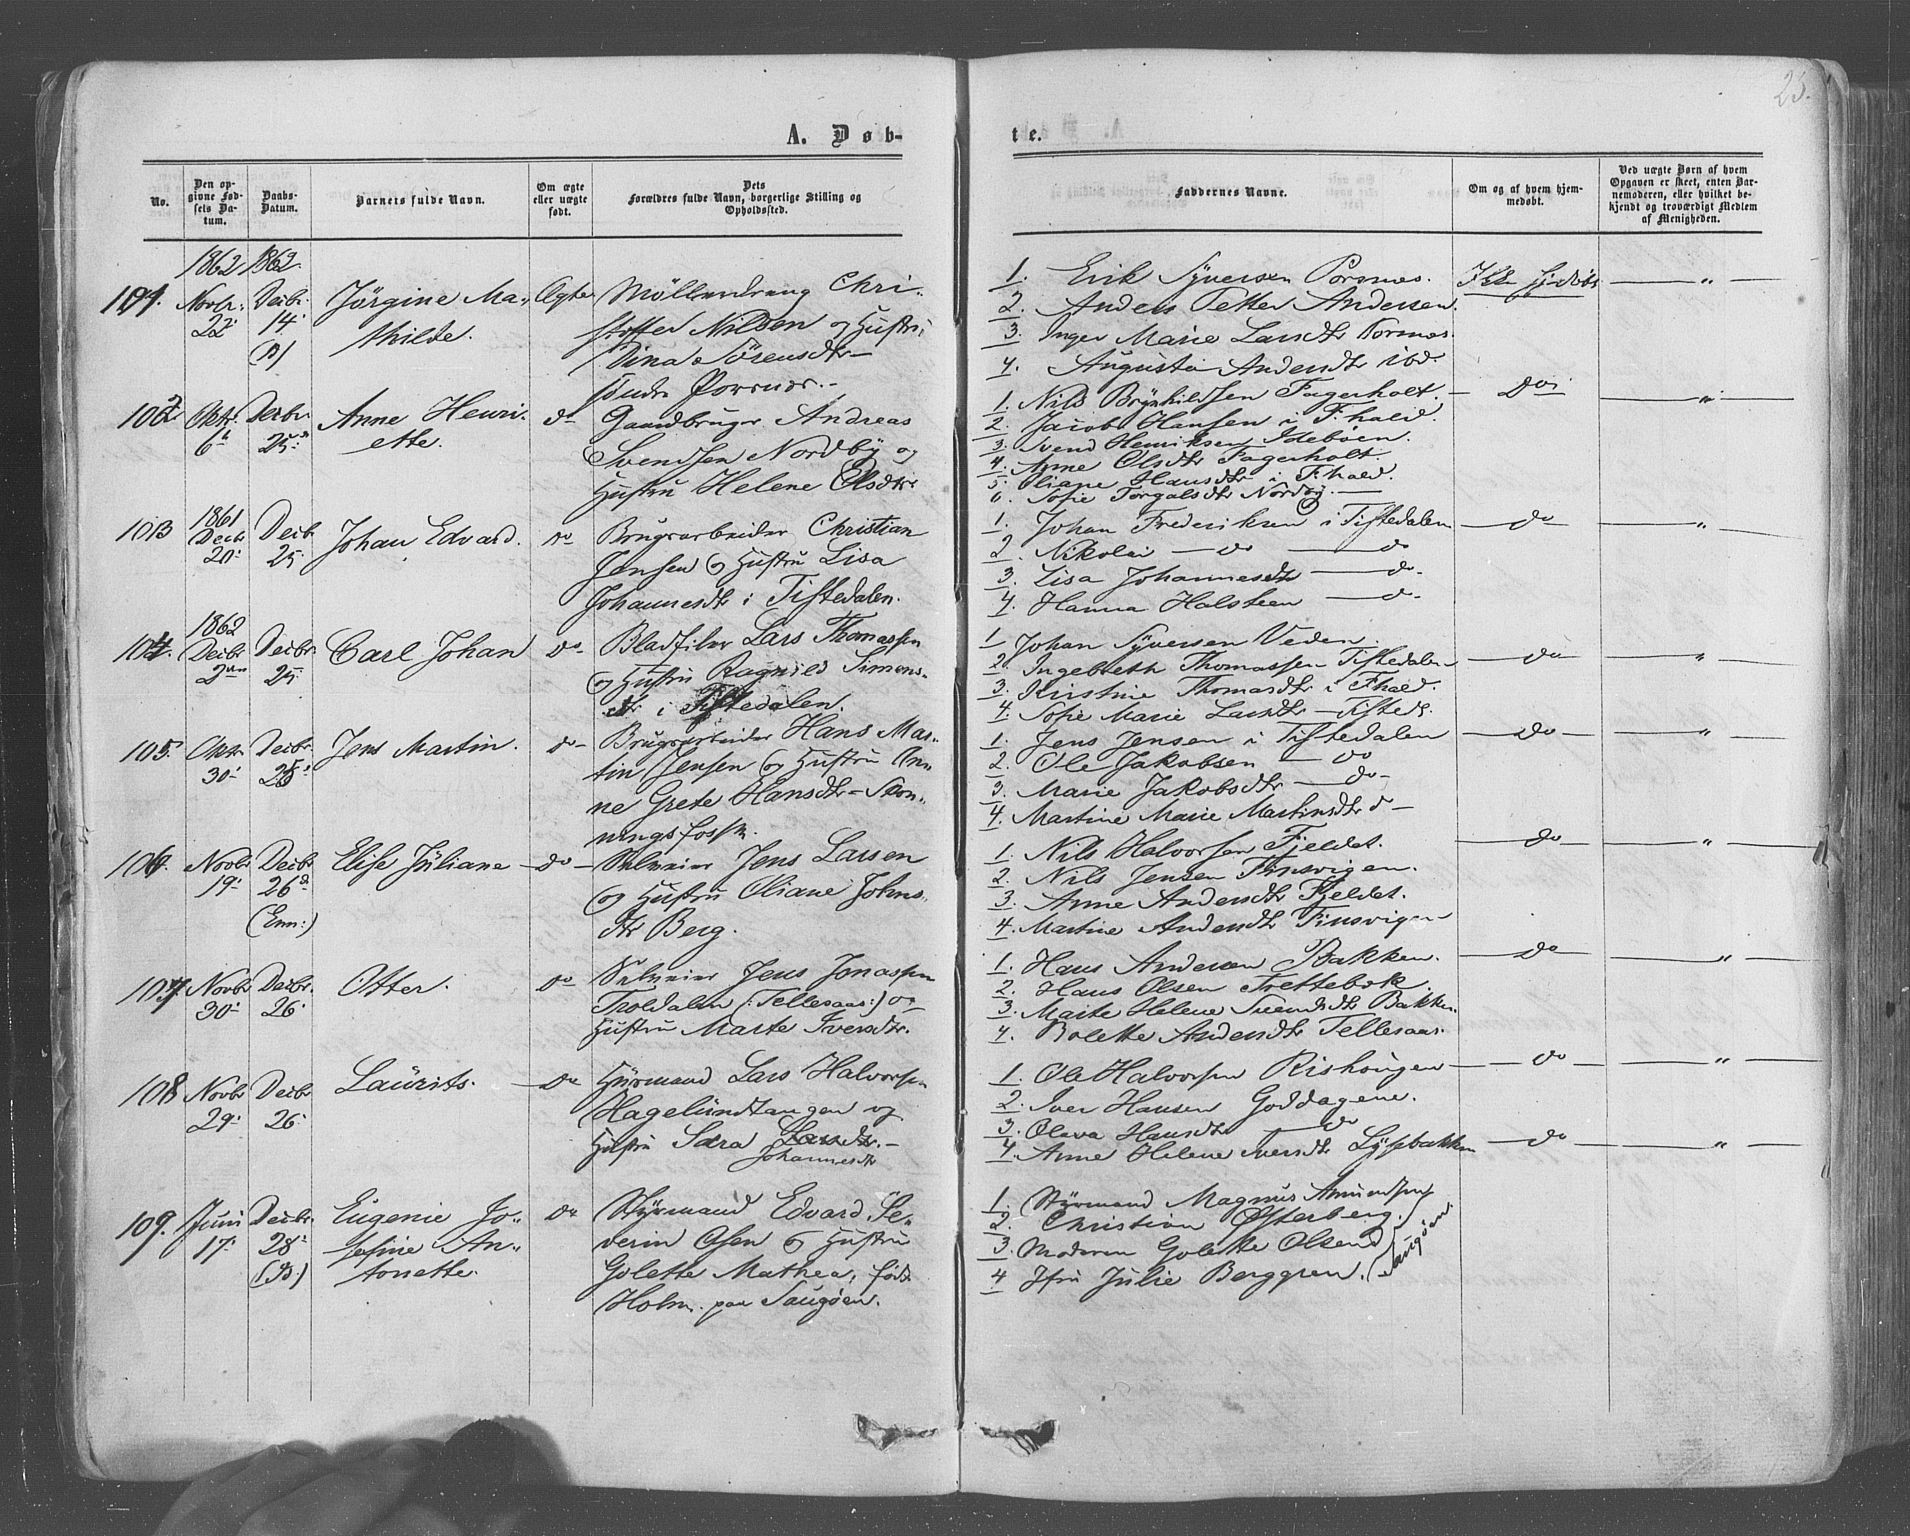 25.
A. Døb-
te.
No.
Den op-
givne Fød-
sels Da-
tum.
Daabs-
Datum.
Barnets fulde Navn.
Om ægte
eller uægte
født.
Dets
Forældres fulde Navn, borgerlige Stilling og
Opholdssted.
Faddernes Navne.
Om og af hvem hjem-
medøbt.
Ved uægte Børn af hvem
Opgaven er skeet, enten Bar-
nemoderen, eller hvilket be-
kjendt og troværdigt Medlem
af Menigheden.
1862 1862
101. Novbr: 22 Decbr. 14 (B)
Jörgine Ma-
thilde.
Ægte
Möllerdreng Chri-
stoffer Nilsen og Hustru
Dina Sörensdtr
Porsnes.
1. Erik Syversen Porsnes.
2. Anders Petter Andersen
3. Inger Marie Larsdtr Porsnes.
4. Augusta Andersdtr ibd.
Ikke hjdøbt
"
102 Oktr. 6 Decbr 25
Anne Henri-
ette.
do
Gaardbruger Andreas
Svendsen Nordby og
Hustru Helene Olsdtr
1. Nils Brynhildsen Fagerholt.
2. Jacob Hansen i Fhald
3. Svend Henriksen Idebøen.
4. Anne Olsdtr Fagerholt.
5. Oliane Hansdtr i Fhald.
6. Sofie Torgalsdtr Nordby.
Do
"
103 1861 Decbr 20 Decbr 25
Johan Edvard.
do
Brugsarbeider Christian
Jensen og Hustru Lisa
Johannesdtr i Tistedalen.
1. Johan Frederiksen i Tistedalen
2. Nikolai do do
3. Lisa Johannesdtr do
4. Hanna Halsteen do
do
"
104. 1862 Decbr 2den Decbr. 25
Carl Johan
do
Bladfiler Lars Thomassen
og Hustru Ragnild Simons-
dtr i Tistedalen.
1 Johan Syversen Veden.
2 Ingebreth Thomassen Tistedalen
3. Kirstine Thomasdtr i Fhald.
4. Sofie Marie Larsdtr Tisted.
do
"
105 Oktr 30 Decbr. 25
Jens Martin.
do
Brugsarbeider Hans Mar-
tin Jensen og Hustru An-
ne Grete Hansdtr Skon-
ningsfossen.
1. Jens Jensen i Tistedalen
2. Ole Jakobsen do
3. Marie Jakobsdtr do
4. Martine Marie Martinsdtr do
do
"
106. Novbr 19 Decbr 26 (Enn:)
Elise Juliane
do
Selveier Jens Larsen
og Hustru Oliane Johns-
dtr Berg.
1. Nils Halvorsen Fjeldet.
2. Nils Jensen Tinsvigen.
3. Anne Andersdtr Fjeldet.
4. Martine Andersdtr Tinsvigen
do
"
107 Novbr 30 Decbr. 26
Otter.
do
Selveier Jens Jonassen
Troldalen (:Tellesaas:) og
Hustru Marte Iversdtr.
1. Hans Andersen Bakken.
2. Hans Olsen Trettebøk.
3. Marte Helene Svendsdtr Bakken.
4. Bolette Andersdtr Tellesaas.
do
"
108 Novbr 29 Decbr 26
Laurits.
do
Huusmand Lars Halvorsen
Hagelundtangen og
Hustru Sara Larsdtr.
Johannesdtr
1. Ole Halvorsen Rishaugen
2. Iver Hansen Goddagene.
3. Olava Hansdtr do
4. Anne Helene Iversdtr Lysebakken
do
"
do
"
109. Juni 17 Decbr. 28 (B)
Eugenie Jo-
sefine An-
tonette.
do
Styrmand Edvard Se-
verin Olsen og Hustru
Golette Mathea, født
Holm paa Saugøen.
1. Styrmand Magnus Amundsen
2. Christian Østerberg.
3. Moderen Golette Olsen
4 Jfru Julie Berggren.
Saugøen.